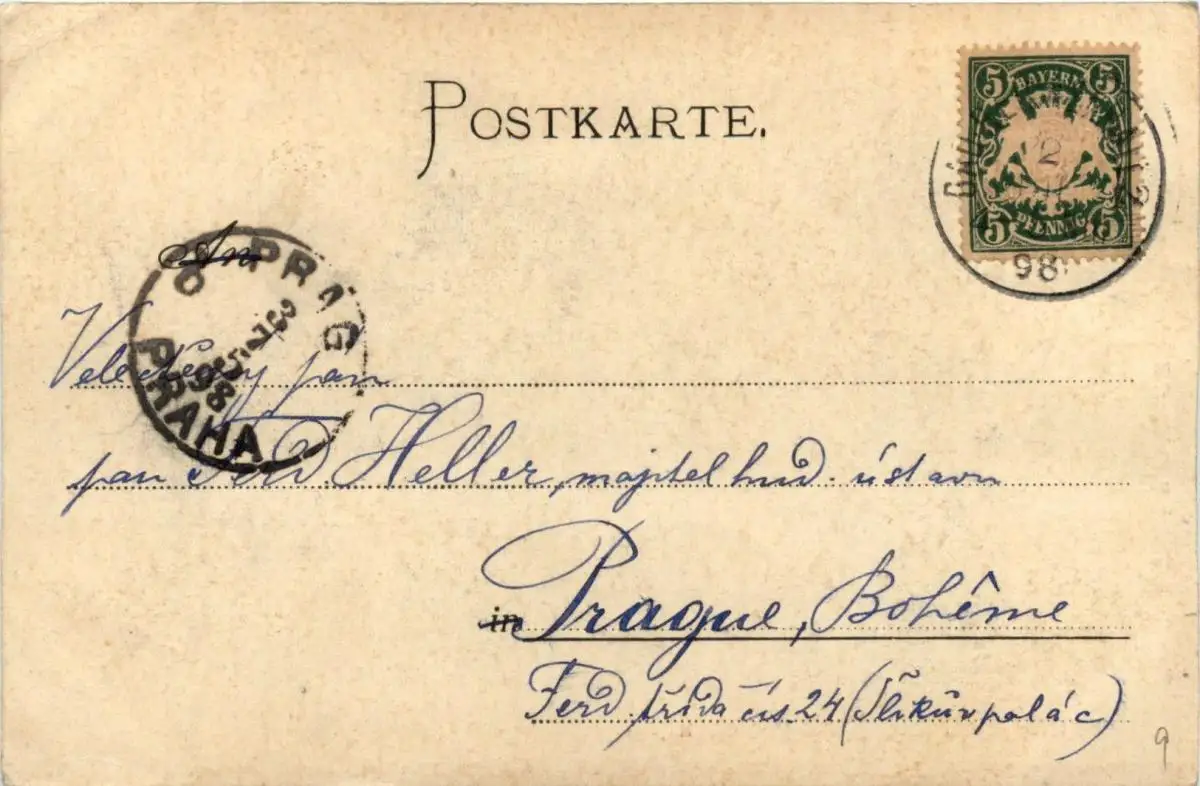 POSTKARTE.
5 BAYERN 5
5 PFENNIG 5
2
98
An
PRAG
3 7
98
PRAHA
pan
pan Ferd. Heller, majtel hud. ústavu
in Prague, Bohême
Ferd třída čís 24 (Šlikův palác)
9